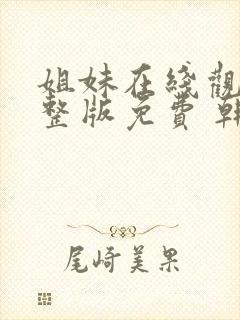 姐妹在綫觀
整版免費 韓
尾崎美果